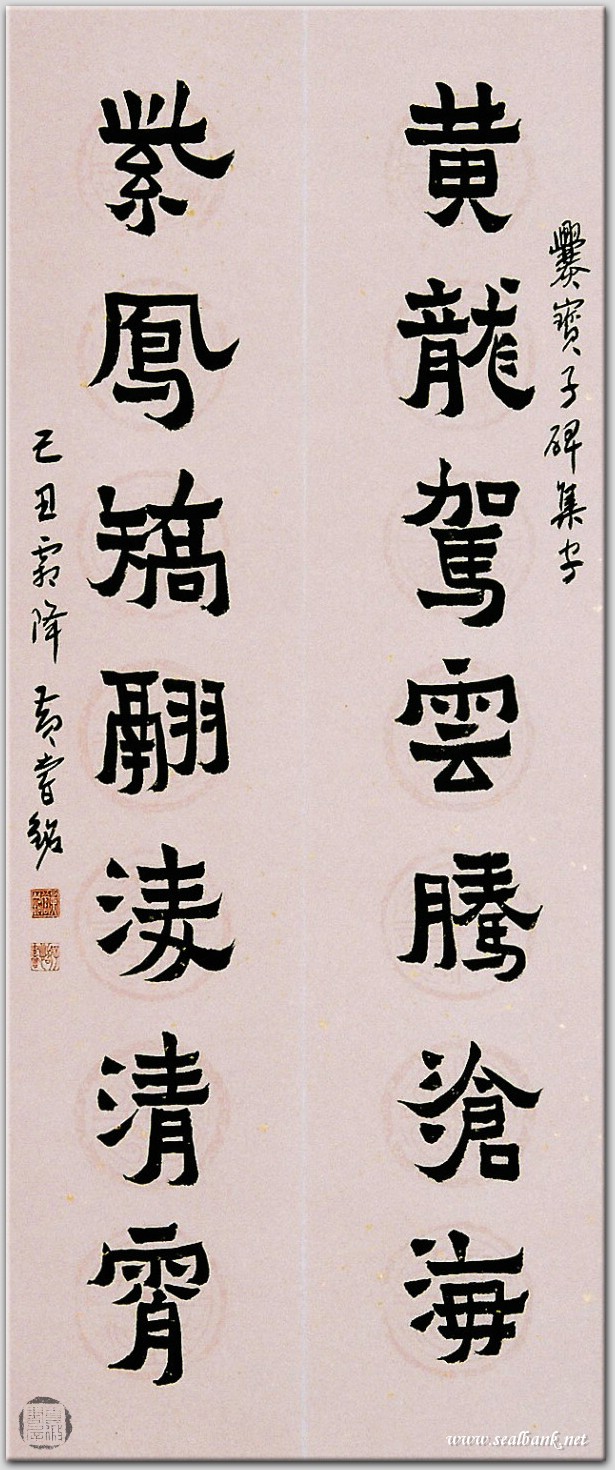 爨寶子碑集字
黄龍駕雲騰滄海
紫鳳矯翮淩清霄
己丑霜降 黄嘗銘
www.sealbank.net